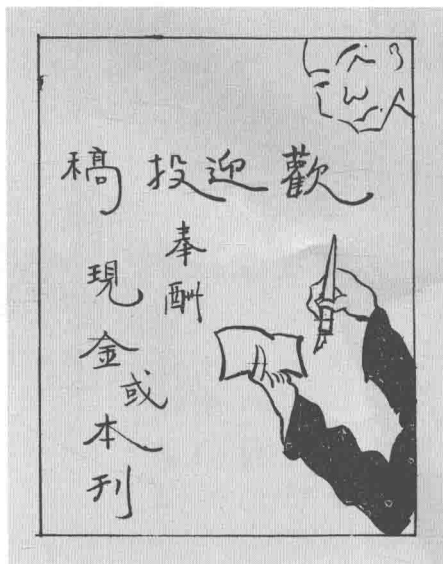 歡迎投稿
奉酬
現金或本刊